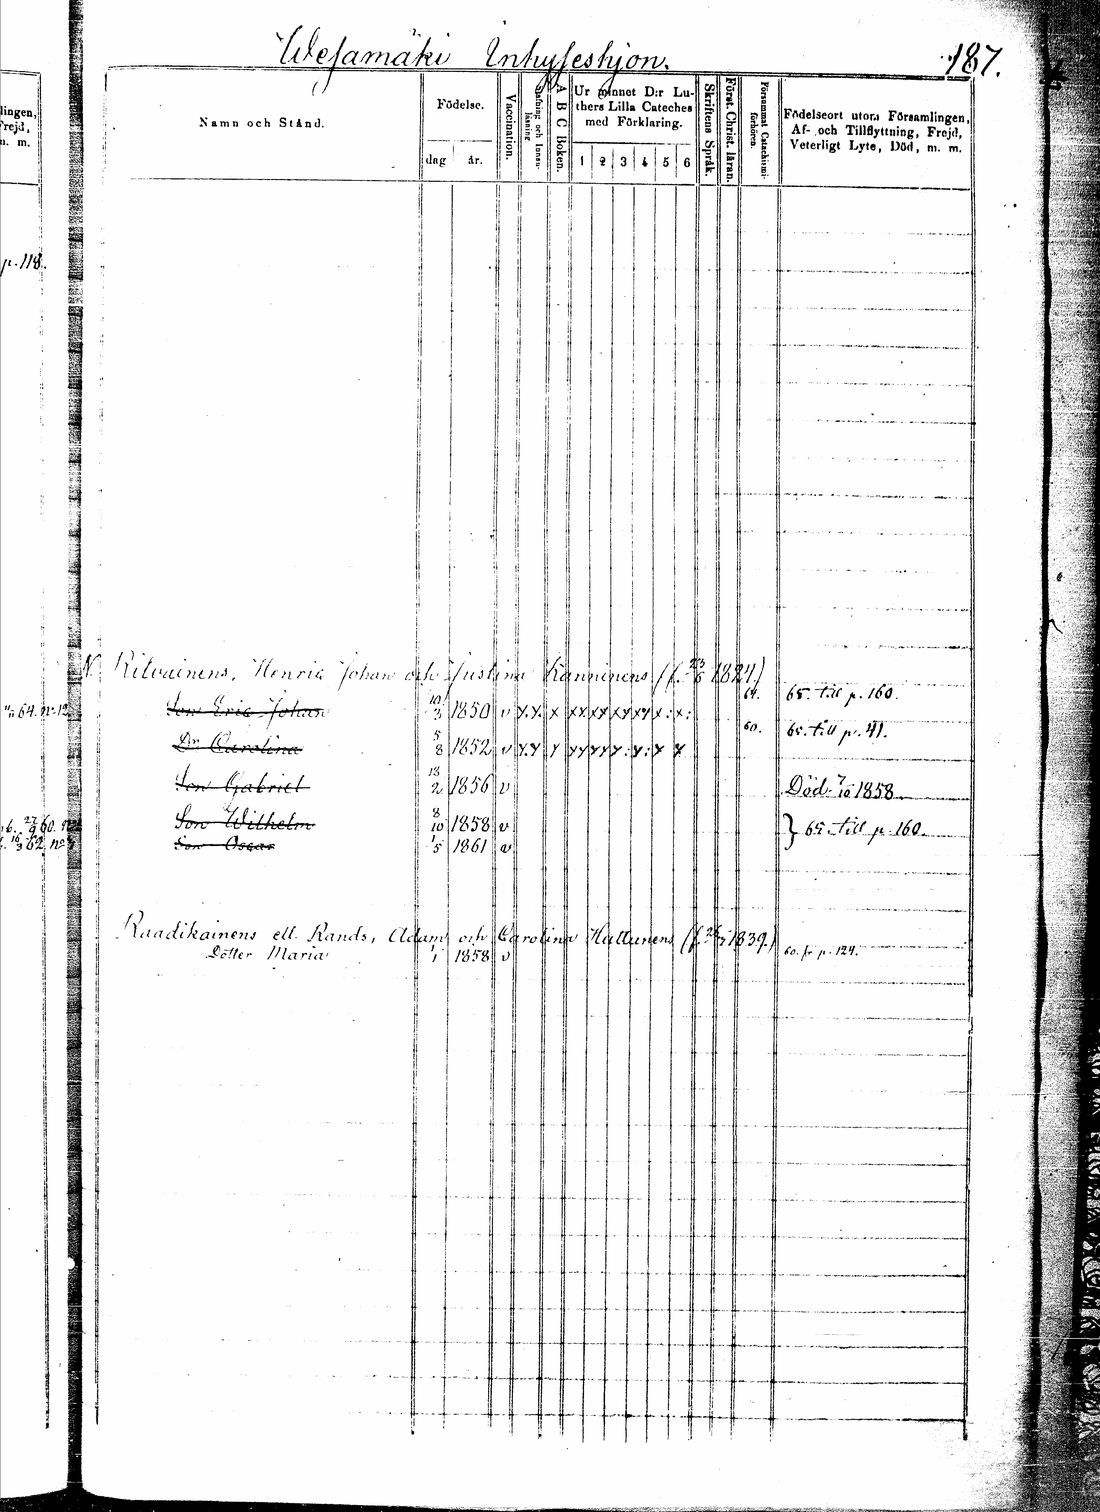 Wesamäki Inhyseshjon.
187.
Namn och Stånd.
Födelse.
dag
år.
Vaccination.
A B C Boken.
Ur minnet D:r Lu-
thers Lilla Cateches
med Förklaring.
1 2 3 4 5 6
Skriftens Språk.
Först. Christ. läran.
Försummat Catechismi-
förhören.
Födelseort utom Församlingen,
Af- och Tillflyttning, Frejd,
Veterligt Lyte, Död, m. m.
lingen,
Frejd,
m. m.
p. 118.
Henric Johan och Justina Kanninens (f. 23/6 1824)
Son Eric Johan 10/3 1850 v x x x xx xx xx xx x: x: 64. 65. till p. 160.
Dr Carolina 5/8 1852 v x x x 60. 65. till p. 41.
Son Gabriel 18/2 1856 v Död 7/10 1858
Son Wilhelm 8/10 1858 v } 65. till p. 160.
Son Oscar 1/5 1861 v
Raadikainens ell. Rands, Adam och Carolina Huttunens (f. 1839.)
Dotter Maria 1/1 1858 v 60. fr p. 124.